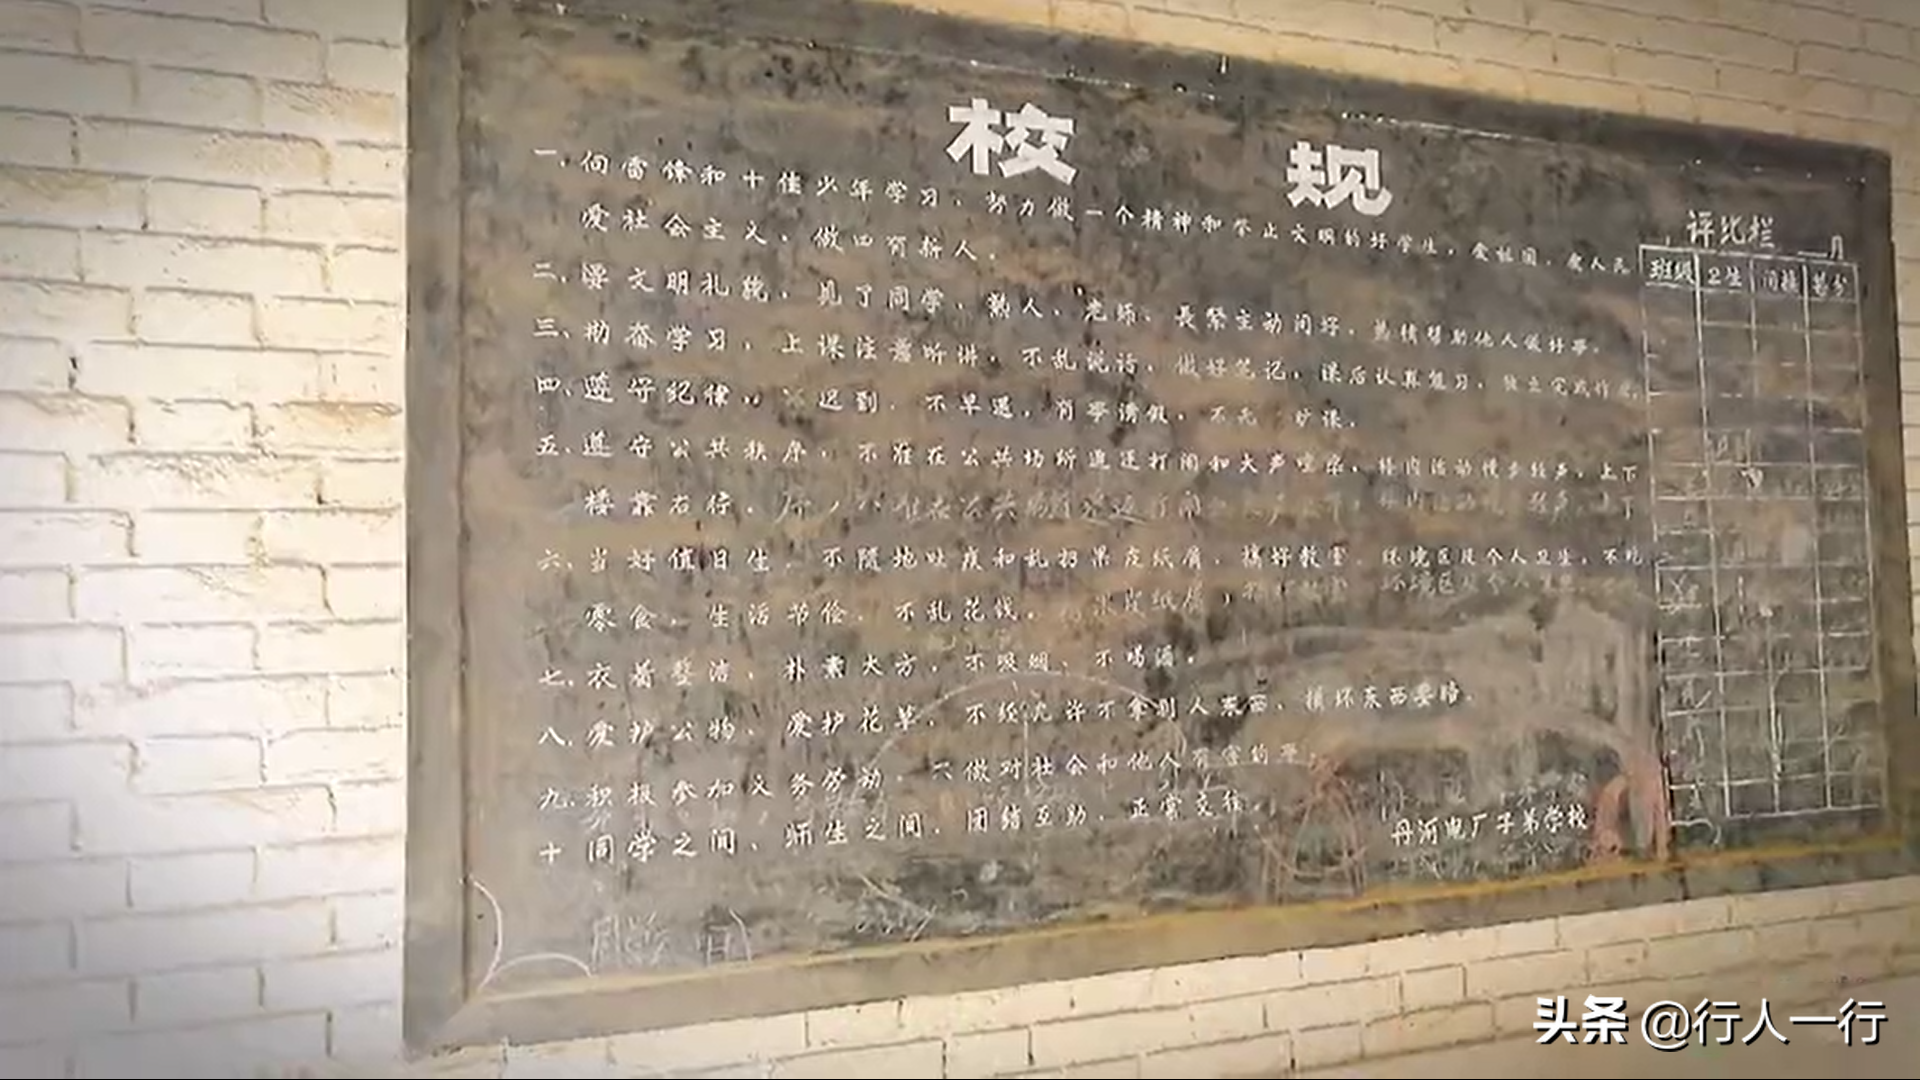 校 规
一、向雷锋和十佳少年学习，努力做一个精神和举止文明的好学生，爱祖国，爱人民
爱社会主义，做四有新人。
二、要文明礼貌，见了同学、熟人、老师、长辈主动问好，热情帮助他人做好事。
三、勤奋学习，上课注意听讲，不乱说话，做好笔记，课后认真复习，独立完成作业。
四、遵守纪律，迟到，不早退，有事请假，不无 旷课。
五、遵守公共秩序，不准在公共场所追逐打闹和大声喧哗，楼内活动慢步轻声，上下
楼靠右行。
六、当好值日生，不随地吐痰和乱扔果皮纸屑，搞好教室、环境区及个人卫生，不吃
零食，生活节俭，不乱花钱。
七、衣着整洁，朴素大方，不吸烟、不喝酒。
八、爱护公物、爱护花草，不经允许不拿别人东西，损坏东西要赔。
九、积极参加义务劳动，不做对社会和他人有害的事。
十 同学之间、师生之间，团结互助，正常交往。
丹河电厂子弟学校
评比栏 月
班级 卫生 总分
头条 @行人一行